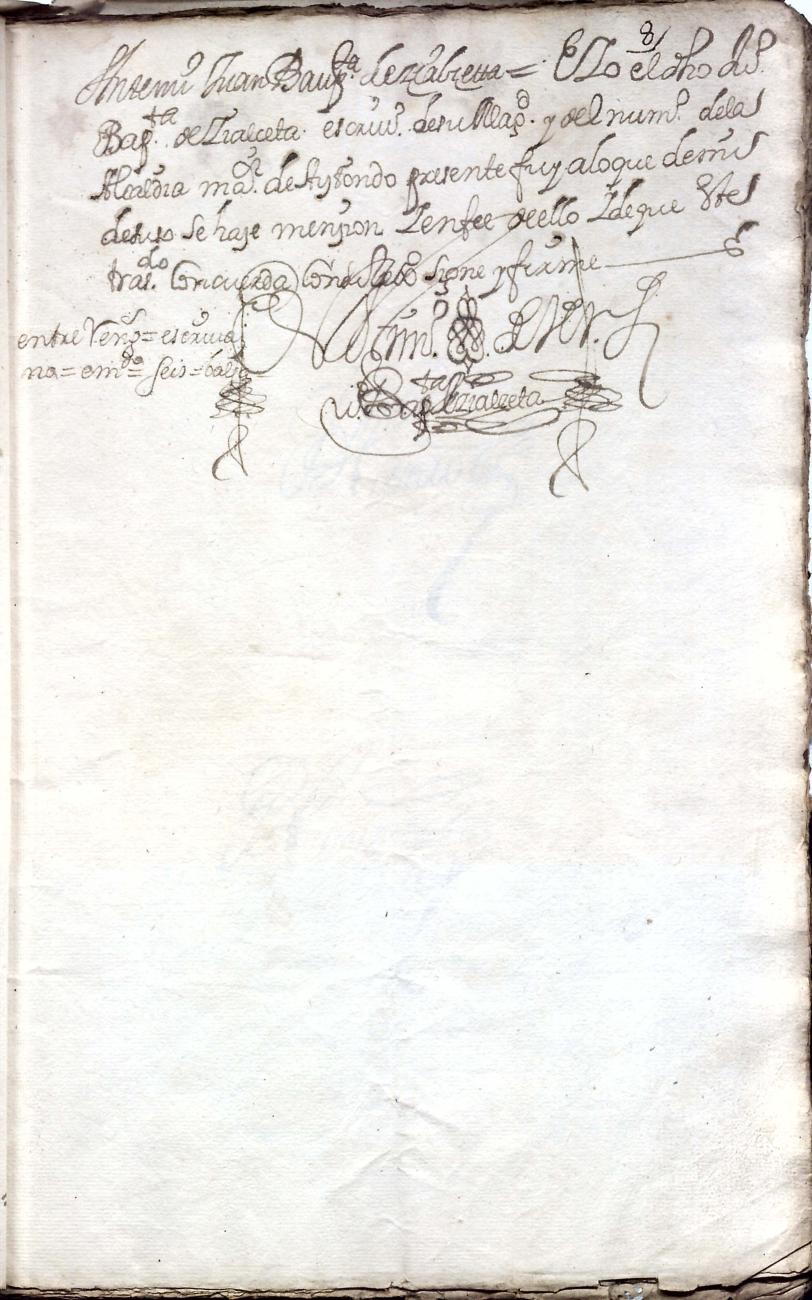 8
Antemi Juan Baup.ta de Yzalzetta = E Yo el dho Ju.o
Bap.ta de Yzalceta escriu.o de su Mag.d y del num.o de la
Alcaldia ma.or de Aiztondo presente fuy a lo que de mi
desuso se haze menzion Y en fee de ello Y de que este
tras.do Concuerda con su Rexo signe y firme
entre Reng.s = escriua
na = em.do = seis = balga
En testim.o de Ver.d
Ju.o Bap.ta de Yzalzeta